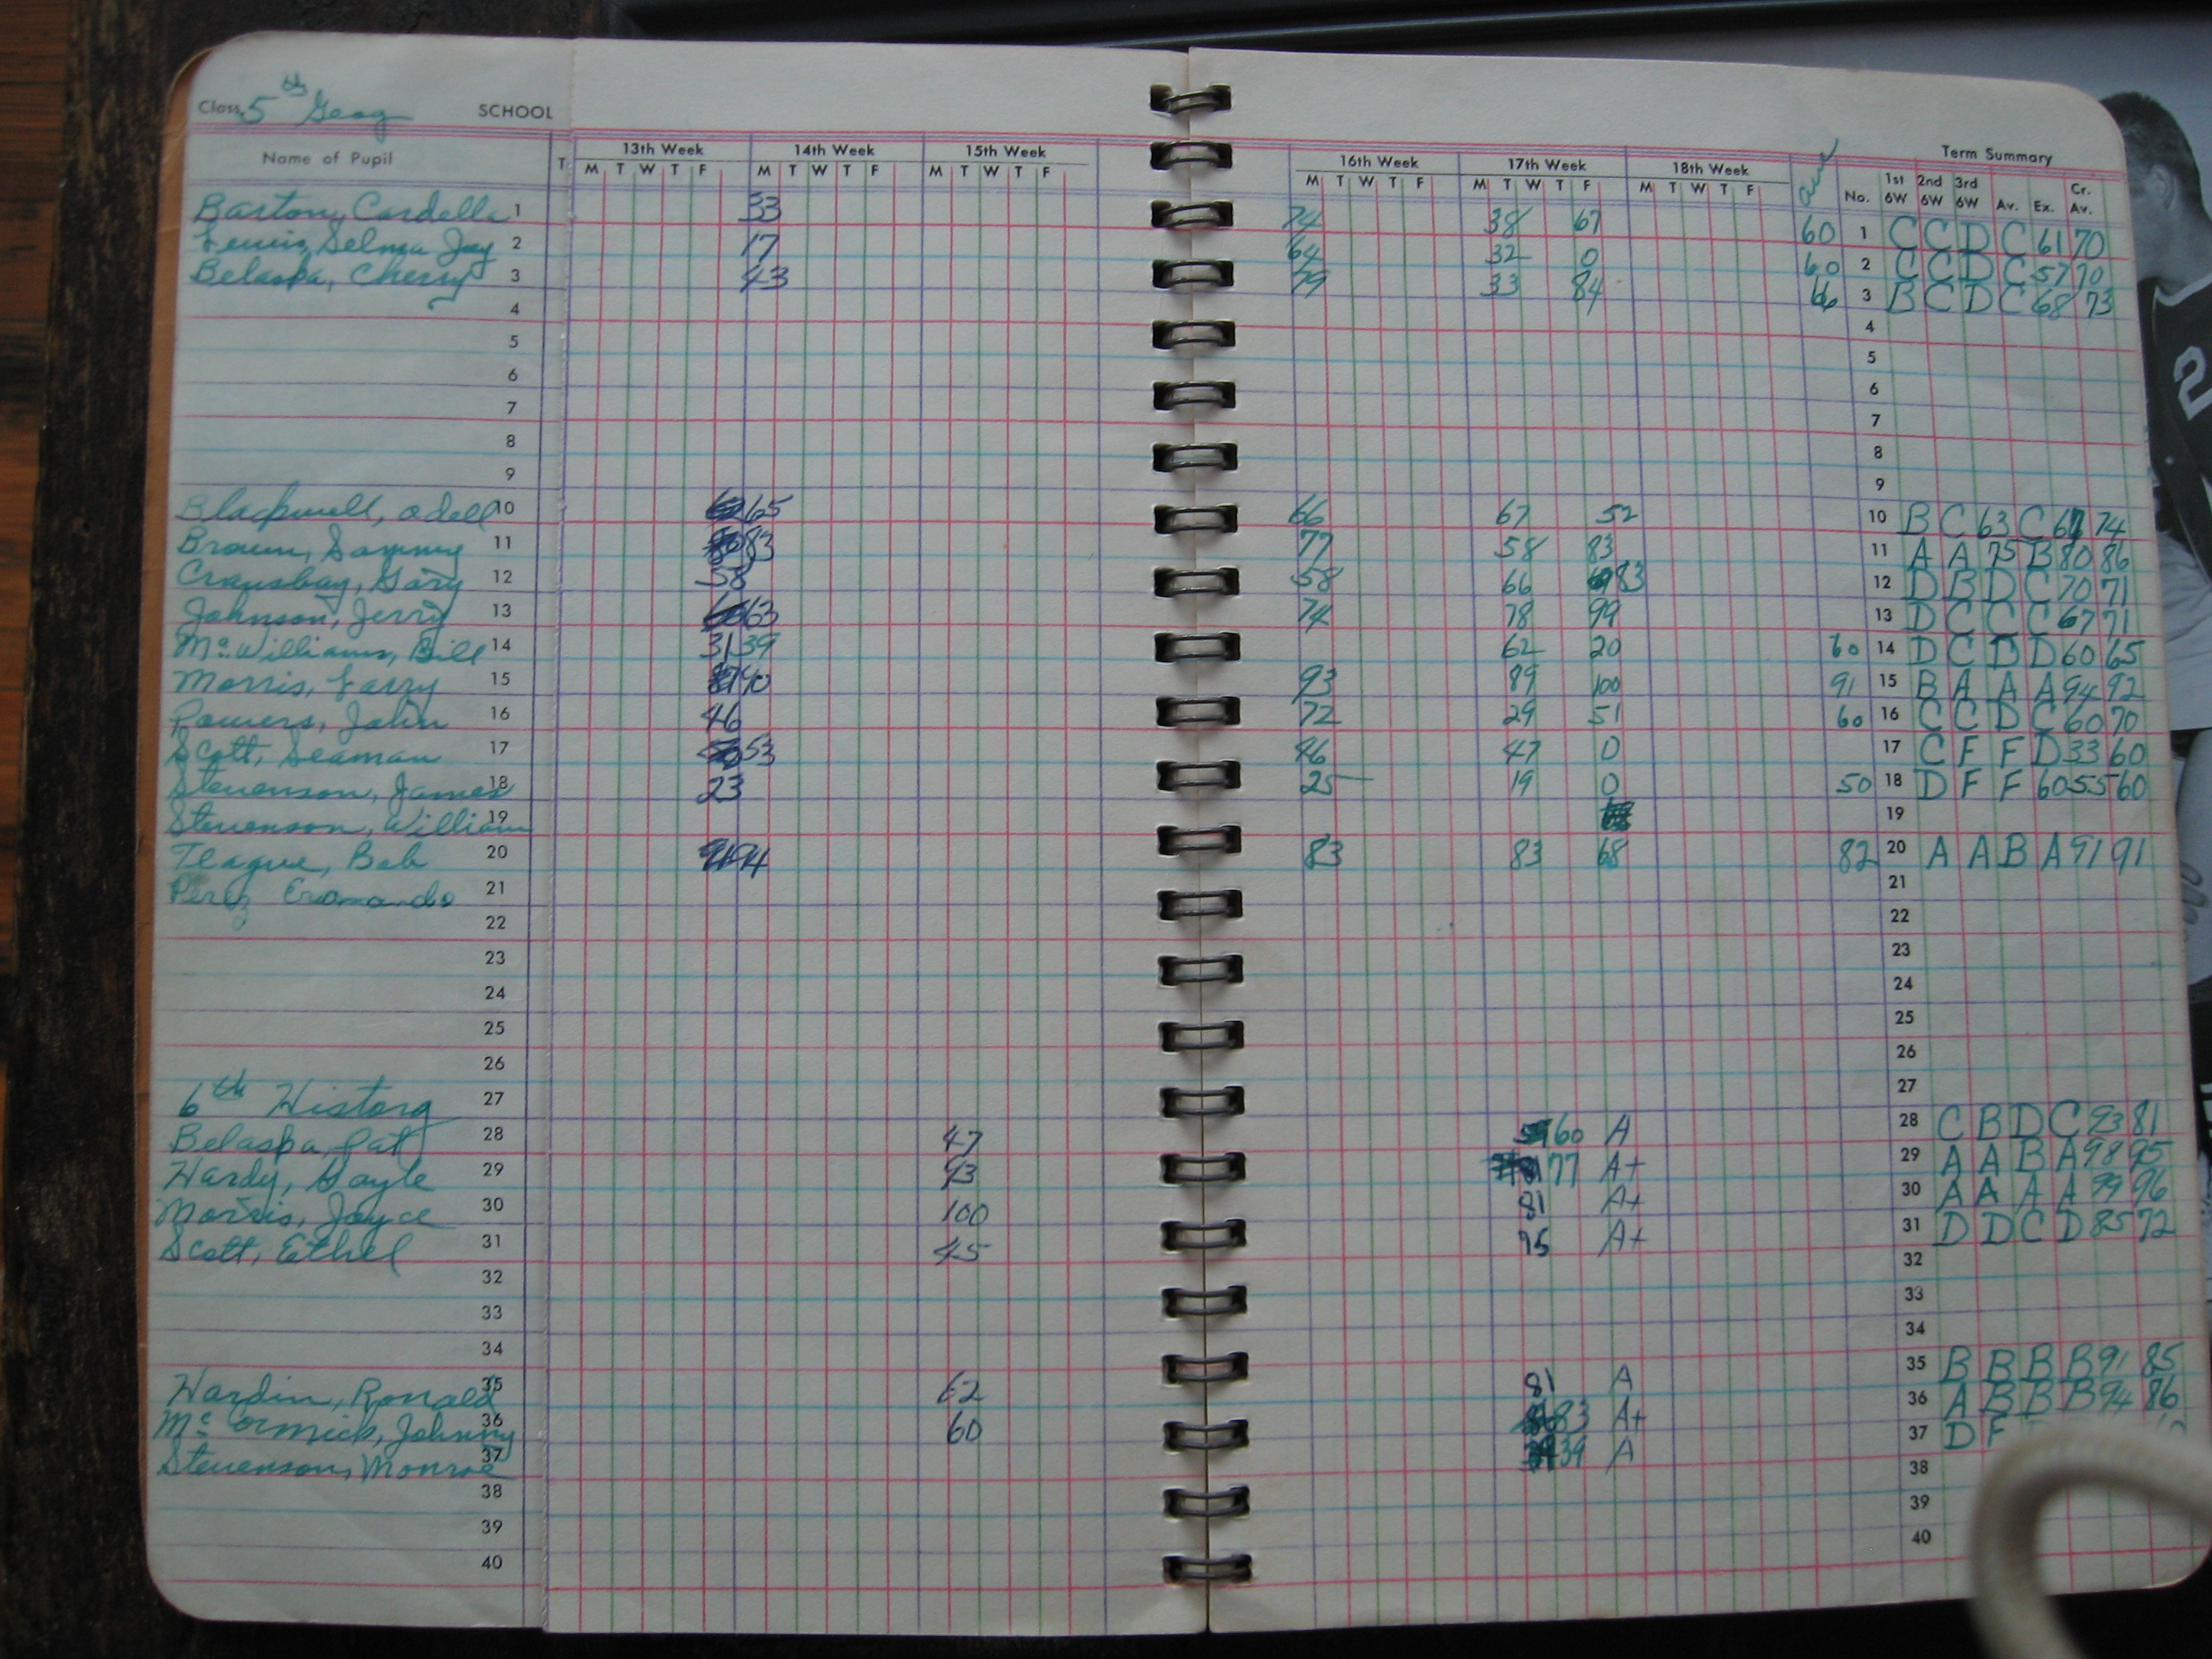 Class 5th Geog SCHOOL
Term Summary
Name of Pupil T 13th Week 14th Week 15th Week 16th Week 17th Week 18th Week
M T W T F M T W T F M T W T F M T W T F M T W T F M T W T F No. 1st 6W 2nd 6W 3rd 6W Av. Ex. Cr. Av.
Barton, Cordella 1 33 74 38 67 60 1 C C D C 61 70
Lewis, Selma Joy 2 17 64 32 0 60 2 C C D C 57 70
Belaspa, Cherry 3 43 79 33 84 66 3 B C D C 68 73
4 4
5 5
6 6
7 7
8 8
9 9
Blackwell, Odell 10 65 66 67 52 10 B C 63 C 74
Brown, Sammy 11 83 77 58 83 11 A A 75 B 80 86
Gary 12 58 58 66 83 12 D B D C 70 71
Johnson, Jerry 13 63 74 78 99 13 D C C C 67 71
McWilliams, Bill 14 31 39 62 20 60 14 D C D D 60 65
Morris, Larry 15 90 93 89 100 91 15 B A A A 94 92
Powers, John 16 46 72 29 51 60 16 C C D C 60 70
Scott, Seaman 17 53 46 47 0 17 C F F D 33 60
Stevenson, James 18 23 25 19 0 50 18 D F F 60 55 60
Stevenson, William 19 19
Teague, Bob 20 94 83 83 68 82 20 A A B A 91 91
Perez 21 21
22 22
23 23
24 24
25 25
26 26
6th History 27 27
Belaspa, Pat 28 47 60 A 28 C B D C 93 81
Hardy, Gayle 29 93 77 A+ 29 A A B A 98 95
Morris, Joyce 30 100 81 A+ 30 A A A A 99 96
Scott, Ethel 31 45 75 A+ 31 D D C D 85 72
32 32
33 33
34 34
Hardin, Ronald 35 62 81 A 35 B B B B 91 85
McCormick, Johnny 36 60 83 A+ 36 A B B B 94 86
Stevenson, Monroe 37 39 A 37 D F
38 38
39 39
40 40
2